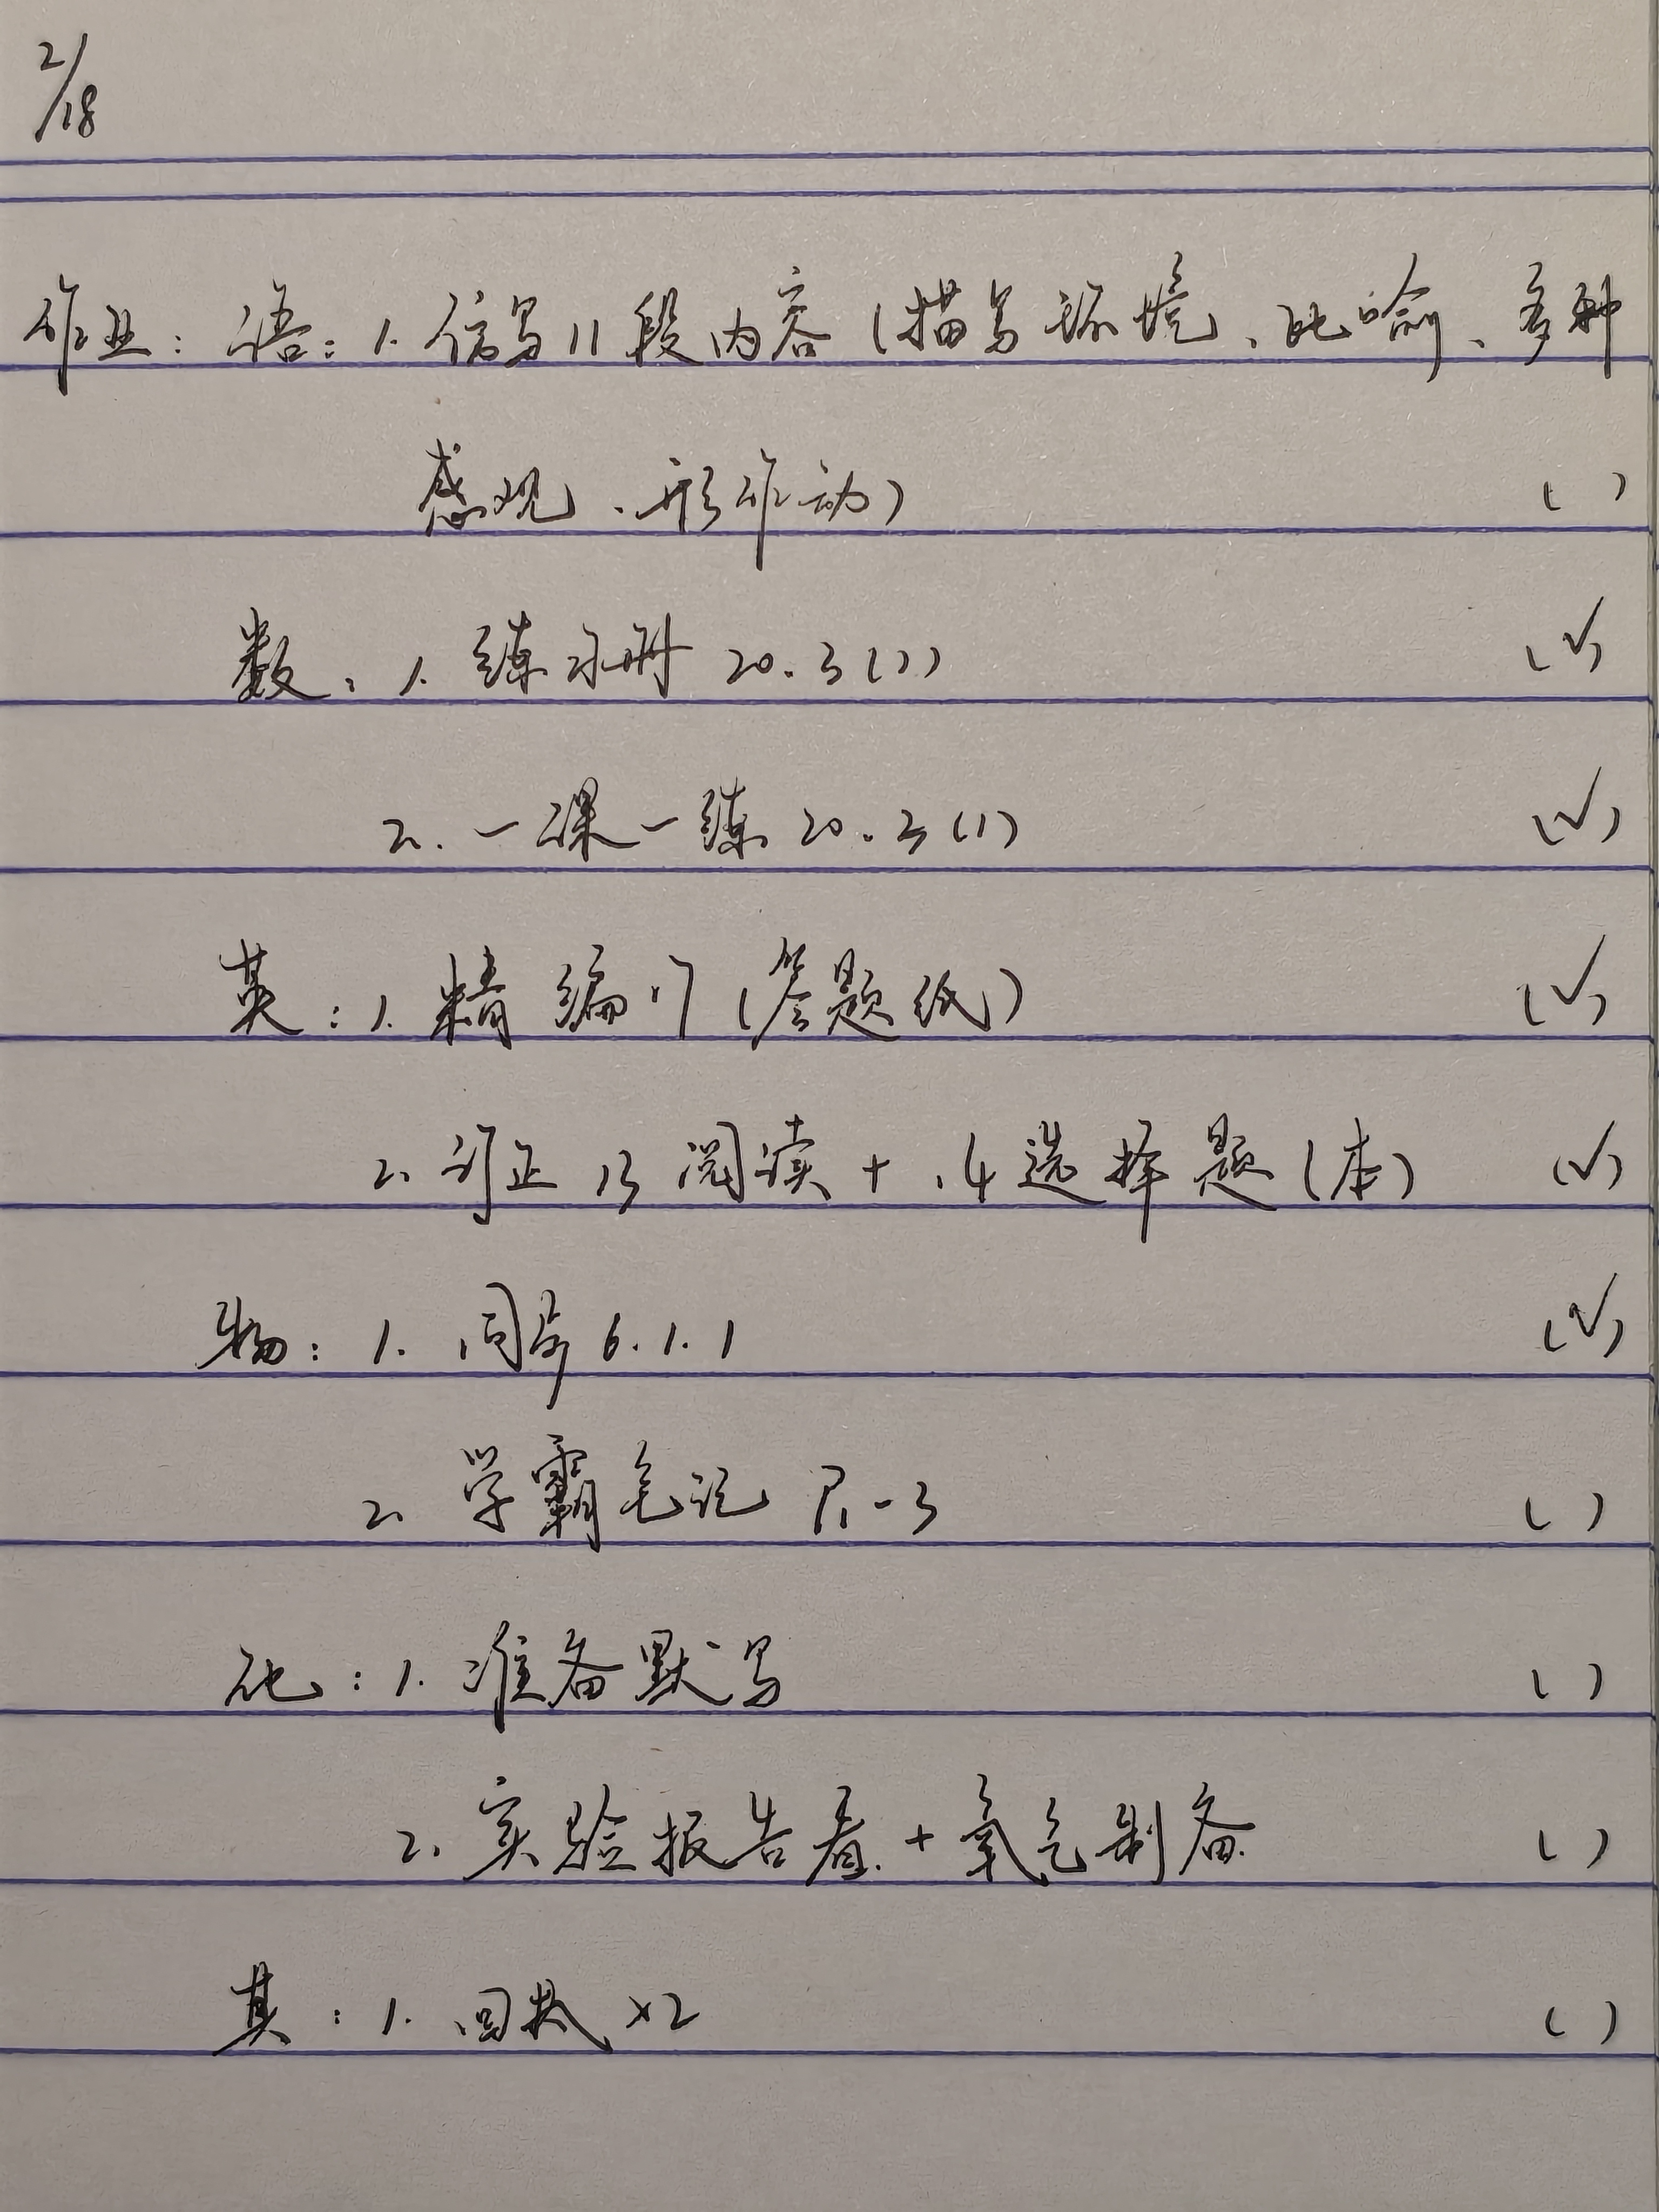 2/18
作业：语：1. 仿写11段内容（描写环境、比喻、多种
感观、形作动） （ ）
数：1. 练习册 20.3(1) （√）
2. 一课一练 20.3(1) （√）
英：1. 精编17（答题纸） （√）
2. 订正13阅读+14选择题（本） （√）
物：1. 同步6.1.1 （√）
2. 学霸笔记 P1-3 （ ）
化：1. 准备默写 （ ）
2. 实验报告看+氧气制备 （ ）
其：1. 回执×2 （ ）